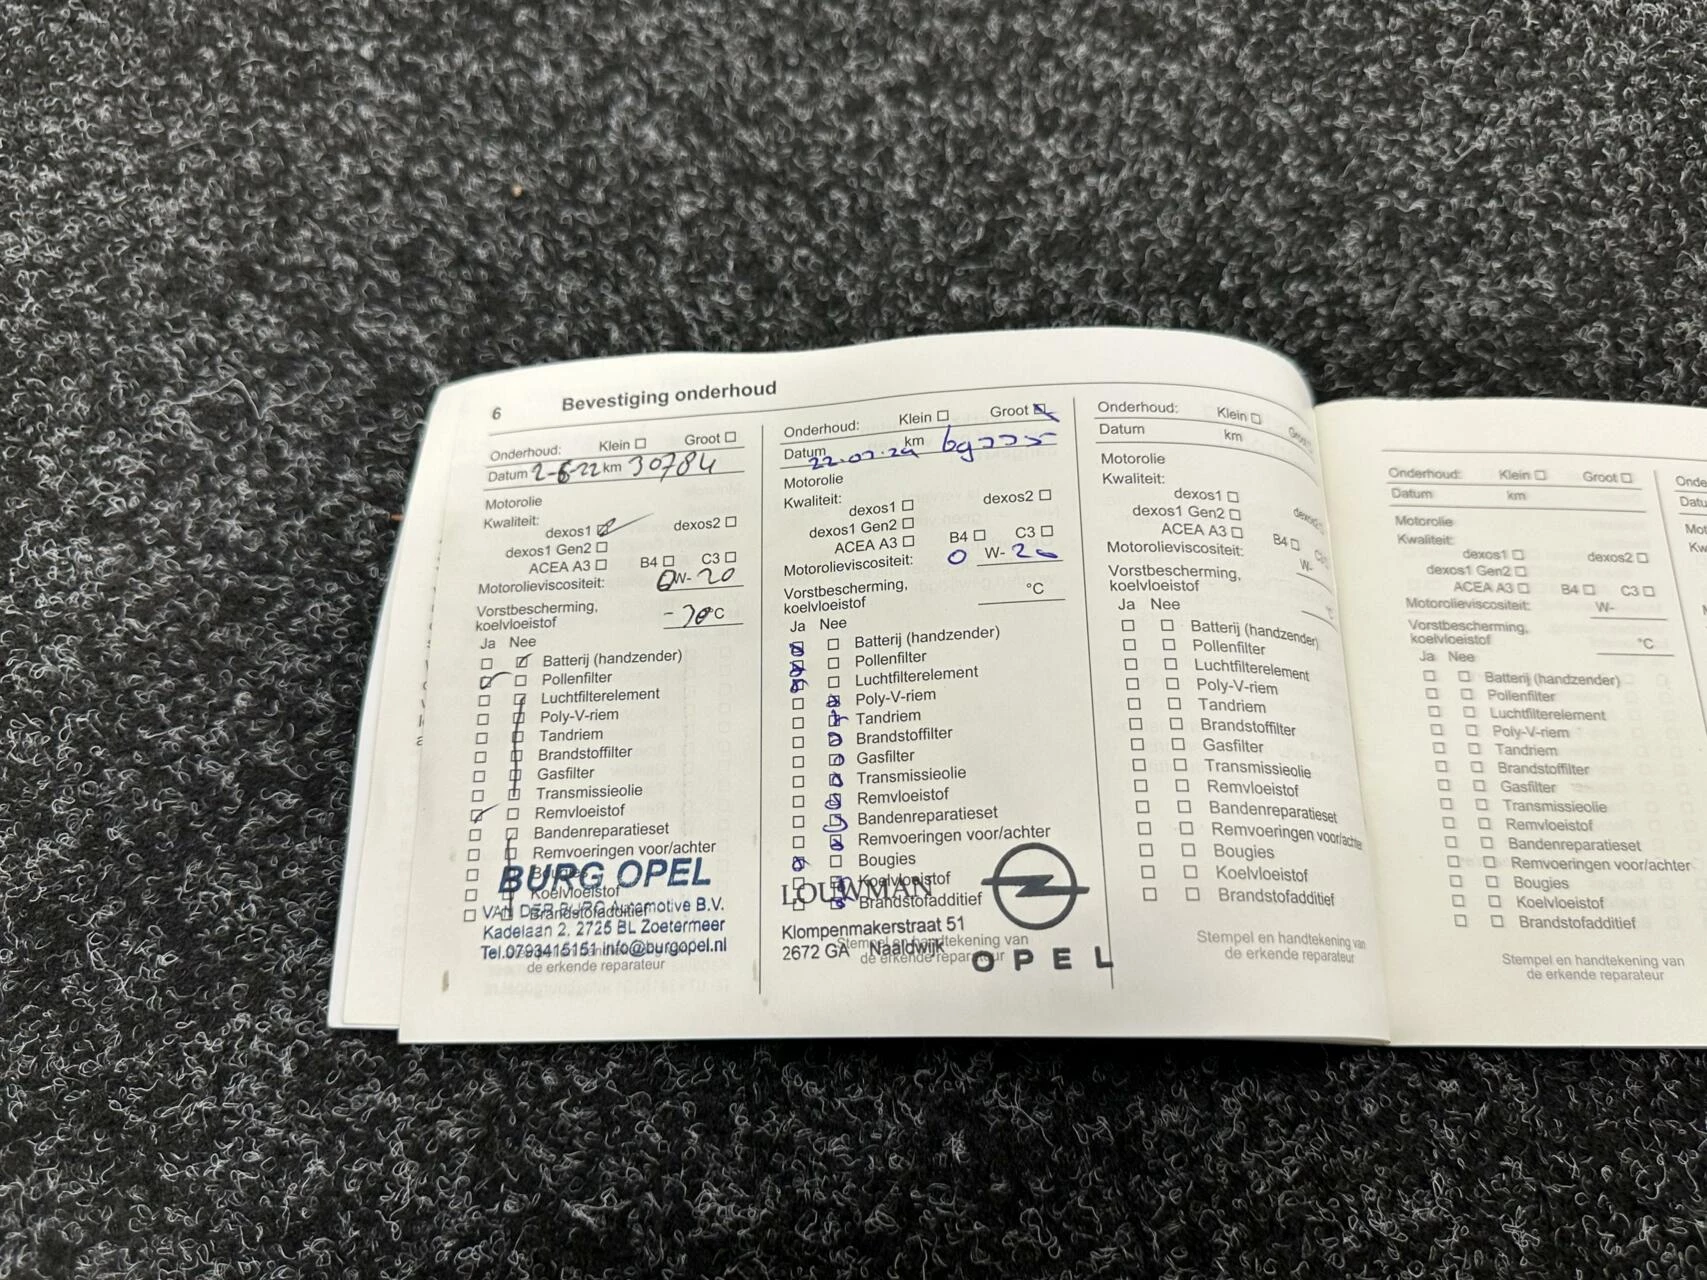 6 Bevestiging onderhoud
Onderhoud: Klein Groot
Datum 2-6-22 km 30784
Motorolie
Kwaliteit:
dexos1 dexos2
dexos1 Gen2
ACEA A3 B4 C3
Motorolieviscositeit: 0W-20
Vorstbescherming,
koelvloeistof °C
Ja Nee
Batterij (handzender)
Pollenfilter
Luchtfilterelement
Poly-V-riem
Tandriem
Brandstoffilter
Gasfilter
Transmissieolie
Remvloeistof
Bandenreparatieset
Remvoeringen voor/achter
BURG OPEL
Koelvloeistof
VAN DER BURG Automotive B.V.
Brandstofadditief
Kadelaan 2, 2725 BL Zoetermeer
Tel.0793415151 info@burgopel.nl
de erkende reparateur
Onderhoud: Klein Groot
Datum km
Motorolie
Kwaliteit:
dexos1 dexos2
dexos1 Gen2
ACEA A3 B4 C3
Motorolieviscositeit: 0 W- 20
Vorstbescherming,
koelvloeistof °C
Ja Nee
Batterij (handzender)
Pollenfilter
Luchtfilterelement
Poly-V-riem
Tandriem
Brandstoffilter
Gasfilter
Transmissieolie
Remvloeistof
Bandenreparatieset
Remvoeringen voor/achter
Bougies
Koelvloeistof
LOUWMAN
Brandstofadditief
Klompenmakerstraat 51
Stempel en handtekening van
2672 GA Naaldwijk
de erkende reparateur
OPEL
Onderhoud: Klein
Datum km
Motorolie
Kwaliteit:
dexos1
dexos1 Gen2
ACEA A3 B4
Motorolieviscositeit: W-
Vorstbescherming,
koelvloeistof
Ja Nee
Batterij (handzender)
Pollenfilter
Luchtfilterelement
Poly-V-riem
Tandriem
Brandstoffilter
Gasfilter
Transmissieolie
Remvloeistof
Bandenreparatieset
Remvoeringen voor/achter
Bougies
Koelvloeistof
Brandstofadditief
Stempel en handtekening van
de erkende reparateur
Onderhoud: Klein Groot
Datum km
Motorolie
Kwaliteit:
dexos1 dexos2
dexos1 Gen2
ACEA A3 B4 C3
Motorolieviscositeit: W-
Vorstbescherming,
koelvloeistof °C
Ja Nee
Batterij (handzender)
Pollenfilter
Luchtfilterelement
Poly-V-riem
Tandriem
Brandstoffilter
Gasfilter
Transmissieolie
Remvloeistof
Bandenreparatieset
Remvoeringen voor/achter
Bougies
Koelvloeistof
Brandstofadditief
Stempel en handtekening van
de erkende reparateur